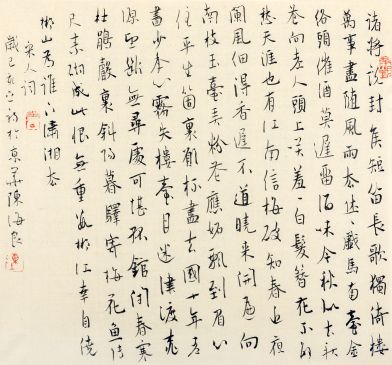 諸將說封侯短笛長歌獨倚樓
萬事盡隨風雨去休休戲馬南臺金
絡頭催酒莫遲留酒味今秋似去秋
花向老人頭上笑羞羞白髮簪花不解
愁天涯也有江南信梅破知春近夜
闌風細得香遲不道曉來開遍向
南枝玉臺弄粉花應妒飄到眉心
住平生箇裏願杯深去國十年老
盡少年心霧失樓臺月迷津渡桃
源望斷無尋處可堪孤館閉春寒
杜鵑聲裏斜陽暮驛寄梅花魚傳
尺素砌成此恨無重數郴江幸自繞
郴山為誰流下瀟湘去
宋人詞
歲己亥於京華陳海良